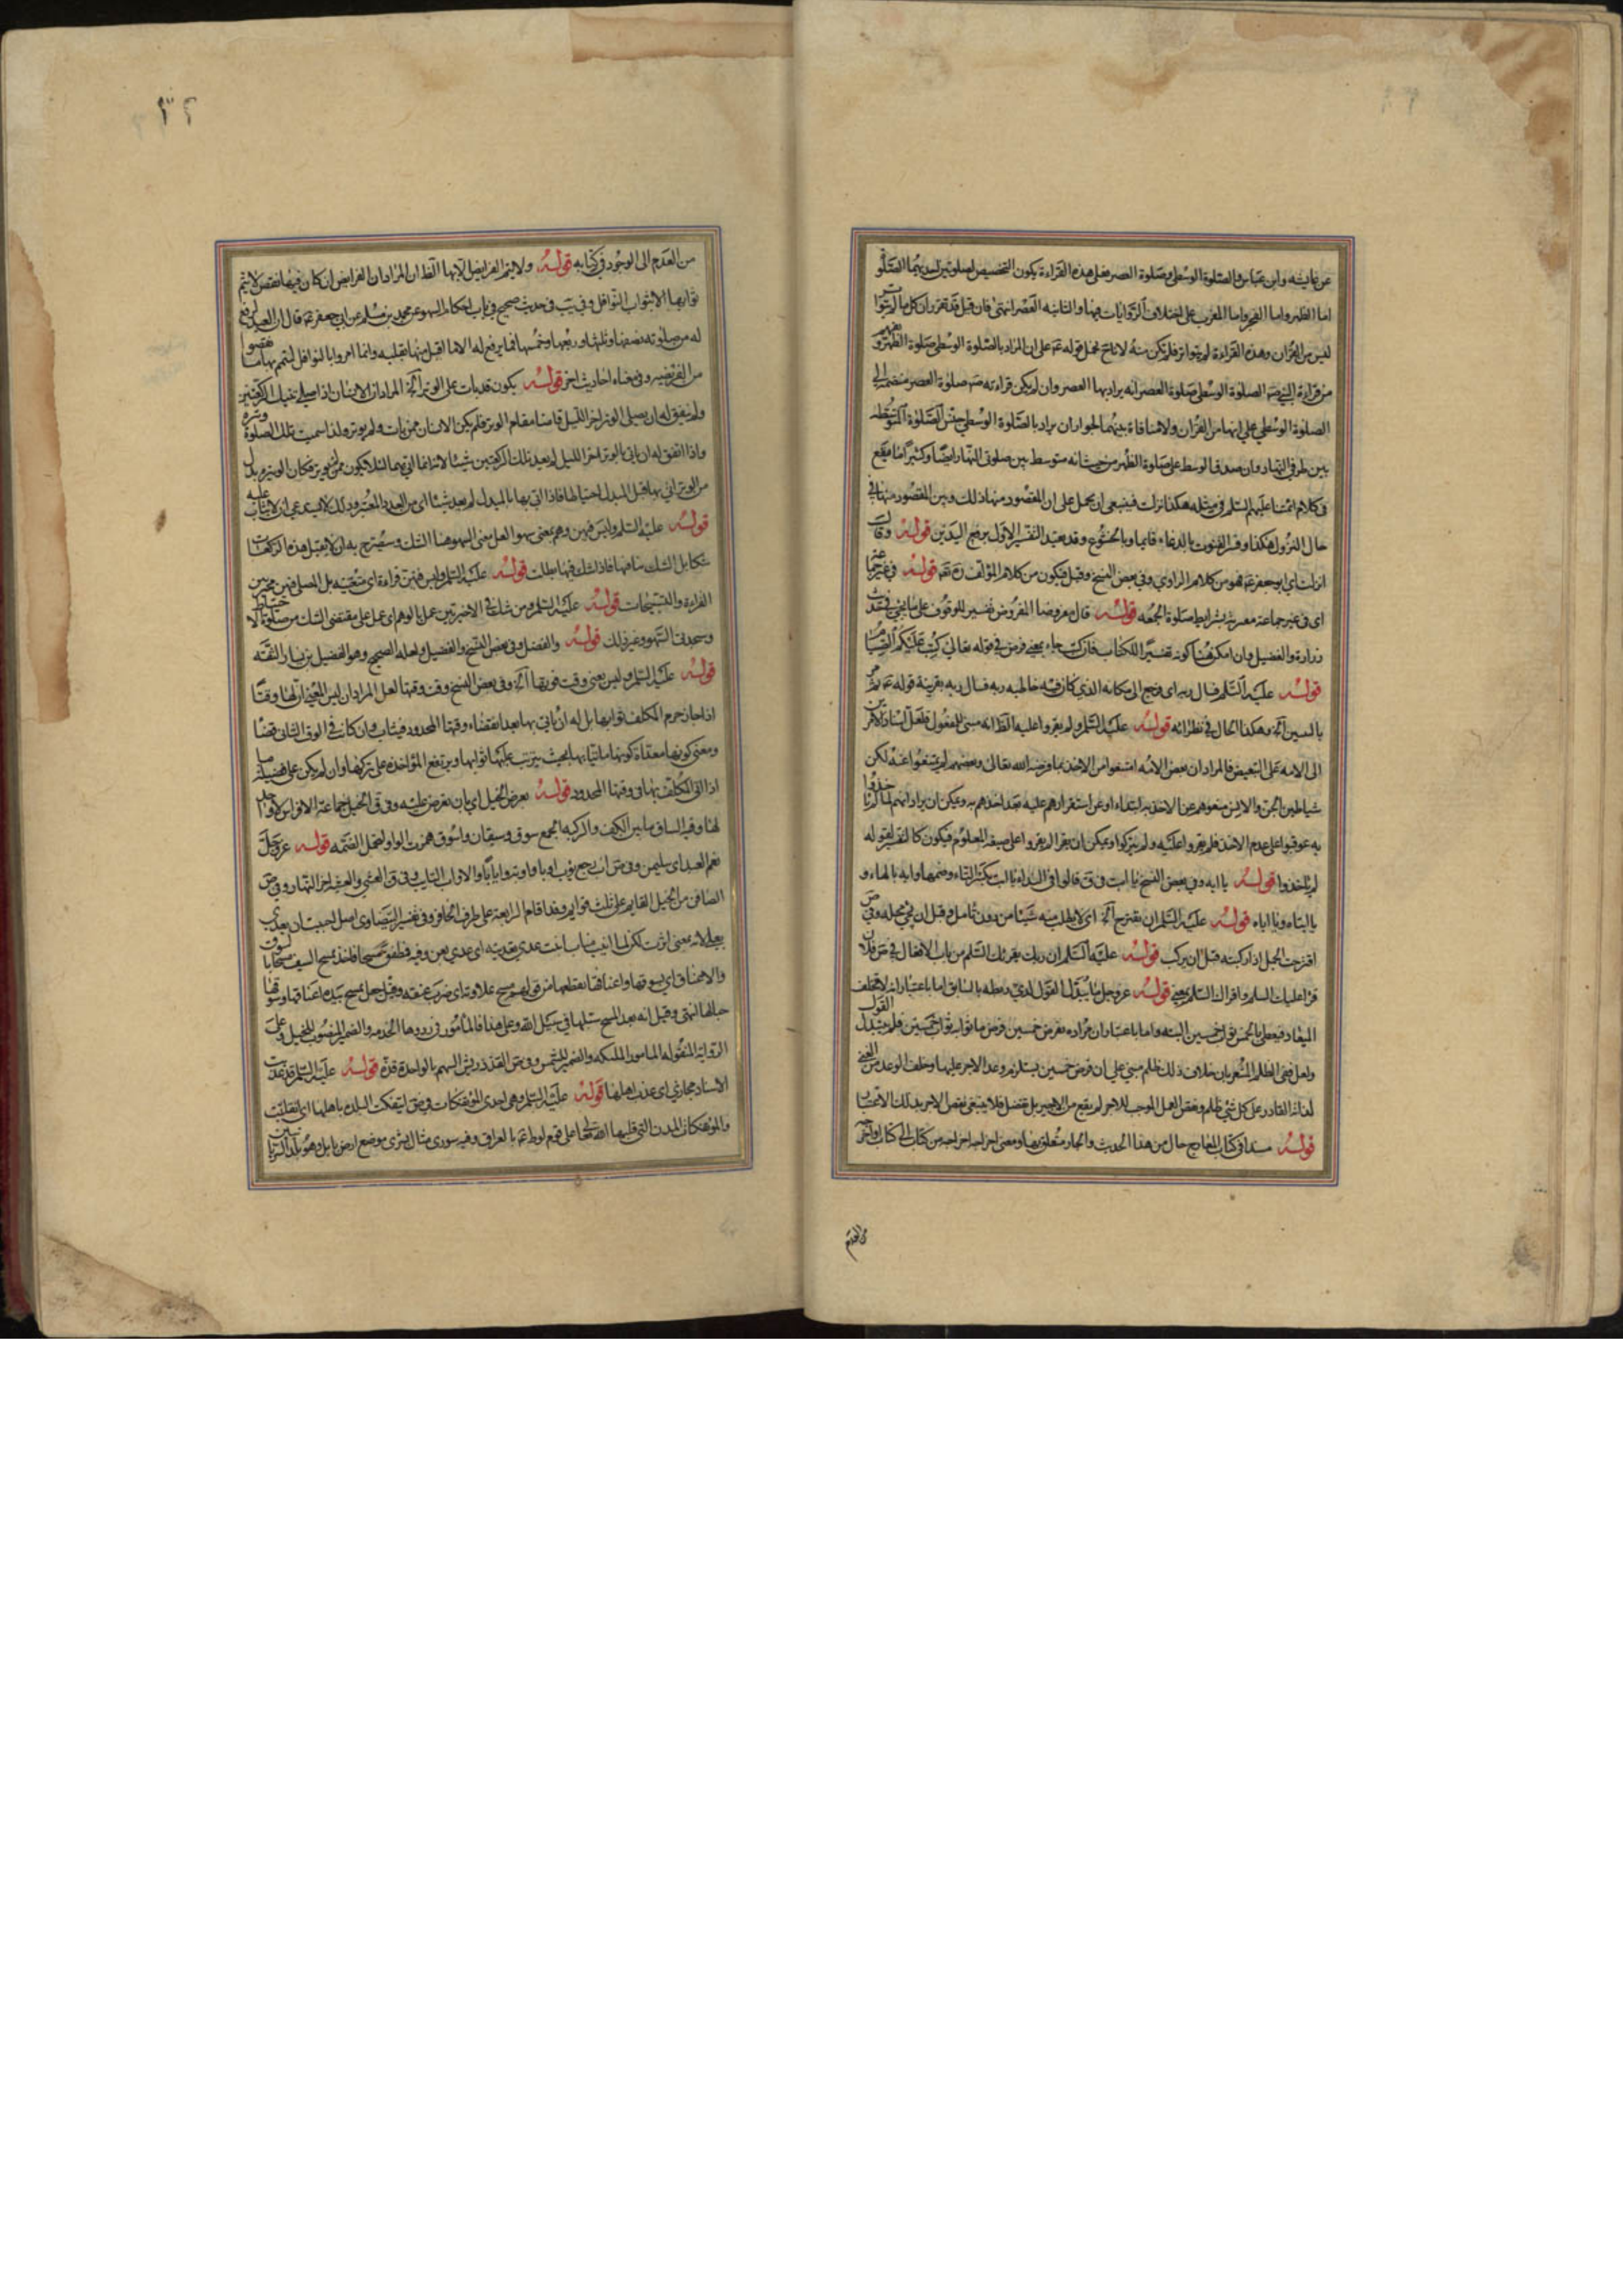 عن عايشه وابن عباس والصلوة الوسطى وصلوة العصر فعلى هذه القراءة يكون التخصيص لصلوتين
اما الظهر واما الفجر واما المغرب على اختلاف الروايات فيها والثانيه العصر انتهى فان قيل قد تقرر ان كل ما لم يتواتر
ليس من القران وهذه القراءة لم يتواتر فلم تكن منه لا نا نحمل قوله على ان المراد بالصلوة الوسطى صلوة الظهر
من قراءة النبي ص الصلوة الوسطى صلوة العصر انه يراد بها العصر وان لم يكن قراءته ص صلوة العصر منضمة الى
الصلوة الوسطى على انها من القران ولا منافاة بينهما لجواز ان يراد بالصلوة الوسطى جنس الصلوة المتوسطه
بين طرفي النهار وان صدق الوسط على صلوة الظهر من حيث انه متوسط بين صلوتي النهار ايضا وكثيرا ما يقع
في كلام ائمتنا عليهم السلم في مثله هكذا نزلت فينبغي ان يحمل على ان المقصود منها ذلك وبين المقصود منها في
حال النزول هكذا وفسر القنوت بالدعاء قايما وبالخشوع وقد يقيد التفسير الاول برفع اليدين قوله وقال
انزلت اى ابو جعفر ع فهو من كلام الراوي وفي بعض النسخ وقيل فيكون من كلام المؤلف ره قوله في غير جماعة
اى في غير جماعة معتبرة بشرايط صلوة الجمعه قوله قال مفروضا المفروض تفسير للموقوف على ما يجئ في حديث
زرارة والفضيل وان امكن هنا كونه تفسيرا للكتاب فان كتب جاء بمعنى فرض في قوله تعالى كتب عليكم الصيام
قوله عليه السلم فسال ربه اى رجع الى مكانه الذي كان فيه خاطبه ربه فسال ربه بقرينة قوله
بالسين آه وهكذا الحال في نظرائه قوله عليه السلم ولم يقروا عليه الظ انه مبنى للمفعول فلعل اسناد الامر
الى الامه على التبعيض فالمراد ان بعض الامه امتنعوا من الاخذ بما فرضه الله تعالى وبعضهم لم يمتنعوا عنه لكن
شياطين الجن والانس منعوهم عن الاخذ به ابتداء او عن استقرارهم عليه بعد اخذهم به ويمكن ان يراد انهم
به عوقبوا على عدم الاخذ فلم يقروا عليه ولم يتركوا ويمكن ان يقرا لم يقروا على صيغة المعلوم فيكون كالتفسير لقوله
لم ياخذوا قوله يا ابه وفي بعض النسخ يا ابت وفي ق قالوا في النداء يا ابت بكسر التاء وضمها ويا ابه بالهاء و
يا ابتاه ويا اباه قوله عليه السلم ان يقترح آه اى لا يطلب منه شيئا من دون تامل وقيل ان يجئ محله وفي ص
اقترحت الجمل اذا ركبته قبل ان يركب قوله عليه السلم ان ربك يقرئك السلم من باب الافعال في ص فلان
قرا عليك السلم واقراك السلم بمعنى قوله عز وجل ما يبدل القول لدي ربطه بالسابق اما باعتبار انه لا تخلف
الميعاد فيعطى بالخمس ثواب خمسين البته واما باعتبار ان مراده بفرض خمسين فرض ما ثوابه ثواب خمسين فلم يتبدل القول
ولعل نفى الظلم المشعر بان خلاف ذلك ظلم مبني على ان فرض خمسين يستلزم وعد الاجر عليها وخلف الوعد من الغنى
لذاته القادر على كل شئ ظلم ونقص العمل الموجب للاجر لم يقع من الاجير بل تفضل فلا ينبغي نقص الاجر بذلك
قوله مسندا في كتاب المعارج حال من هذا الحديث والجار متعلق بها ومعنى اخراجه اخراجه من كتاب الى كتاب او
من العدم
٣٢
من العدم الى الوجود في كتابه قوله ولا يتم الفرايض الا بها الظ ان المراد ان الفرايض ان كان فيها نقص لا يتم
ثوابها الا بثواب النوافل وفي يب في حديث صحيح في باب احكام السهو عن محمد بن مسلم عن ابي جعفر ع قال ان العبد ليرفع
له من صلوته نصفها وثلثها وربعها وخمسها فما يرفع له الا ما اقبل منها بقلبه وانما امروا بالنوافل لتتم بها ما نقصوا
من الفريضه وفي معناه احاديث اخر قوله يكون قد بات على الوتر آه المراد ان الانسان اذا صلى تينك الركعتين
ولم يتفق له ان يصلي الوتر اخر الليل قامتا مقام الوتر فلم يكن الانسان ممن بات ولم يوتر ولذا سميت تلك الصلوة وتيرة
واذا اتفق له ان ياتي بالوتر اخر الليل لم يعد تلك الركعتين شيئا لانه انما اتى بهما لئلا يكون ممن لم يوتر فكان الوتيرة بدل
من الوتر اتى بها قبل المبدل احتياطا فاذا اتى بها بالمبدل لم يعد شيئا اى من العدد المعتبر وذلك لا يستدعي ان لا يثاب عليه
قوله عليه السلم وليس فيهن وهم بمعنى سهو العل بمعنى السهو هنا الشك وسيصرح به ان لا يقبل هذه الركعات
شكا بل الشك مناف لها فاذا شك فيها بطلت قوله عليه السلم وليس فيهن قراءة اى متعينه بل المصلى فيهن مخير بين
القراءة والتسبيحات قوله عليه السلم ومن شك في الاخيرتين عمل بالوهم اى عمل على مقتضى الشك من صلوة الاحتياط
وسجدتي السهو وغير ذلك قوله والفضل وفي بعض النسخ والفضيل ولعله الصحيح وهو الفضيل بن يسار الثقه
قوله عليه السلم وليس يعني وقت فوتها آه وفي بعض النسخ وقت وقتها لعل المراد ان ليس المعنى ان لها وقتا
اذا جاز حرم المكلف ثوابها بل له ان ياتي بها بعد انقضاء وقتها المحدود فيثاب وان كان في الوقت الثاني قضا
ومعنى كونها مؤداة كونها ماتيا بها بحيث يترتب عليها ثوابها ويرتفع المؤاخذة على تركها وان لم يكن على فضيلة ما
اذا اتى المكلف بها في وقتها المحدود قوله بعرض الخيل اى بان يعرض عليه وفي ق الخيل جماعة الافراس لا واحد
لها وفيه الساق ما بين الكعب والركبه الجمع سوق وسيقان واسوق همزت الواو لتحمل الضمه قوله عز وجل
نعم العبد اى سليمن وفي ص اب رجع يؤب اوبا واوبة وايابا والاواب التايب وفي ق العشي والعشيه اخر النهار وفي ص
الصافن من الخيل القايم على ثلث قوايم وقد اقام الرابعة على طرف الحافر وفي تفسير البيضاوى اصل احببت ان يعدى
بعلى لانه بمعنى اثرت لكن لما انيب مناب انبت عدى تعديته اى عدي بعن وفيه فطفق مسحا فاخذ يمسح السيف مسحا بالسوق
والاعناق اى بسوقها واعناقها يقطعها من قولهم مسح علاوته اى ضرب عنقه وقيل جعل يمسح بيده اعناقها وسوقها
حبا لها انتهى وقيل انه بعد المسح سبلها في سبيل الله وعلى هذا فالمأمور في ردوها الخدمه والضمير المنصوب للخيل وعلى
الرواية المنقوله المامور الملئكه والضمير للشمس وفي ص القذذ ريش السهم الواحدة قذة قوله عليه السلم قد عذبت
الاسناد مجازي اى عذب اهلها قوله عليه السلم وهي احدى المؤتفكات في ص ائتفكت البلده باهلها اى انقلبت
والمؤتفكات المدن التي قلبها الله تعالى على قوم لوط ع بالعراق وفيه سورى مثال بشرى موضع ارض بابل وهو بلد السريانيين